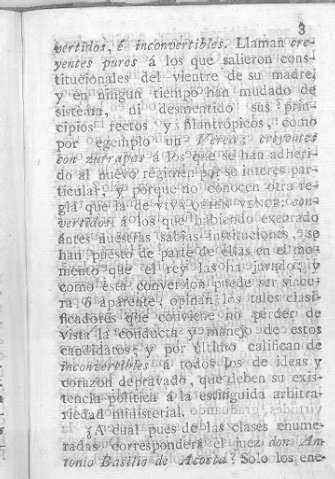 3
vertidos, é inconvertibles. Llaman cre-
yentes puros á los que salieron cons-
titucionales del vientre de su madre,
y en ningun tiempo han mudado de
sistema, ni desmentido sus prin-
cipios rectos y filantrópicos, como
por egemplo un Verea; creyentes
con zurrapas á los que se han adheri-
do al nuevo régimen por su interes par-
ticular, y porque no conocen otra re-
gla que la de VIVA QUIEN VENCE; con-
vertidos á los que habiendo execrado
ántes nuestras sabias instituciones, se
han puesto de parte de ellas en el mo-
mento que el rey las ha jurado; y
como esta conversion puede ser since-
ra, ó aparente, opinan los tales clasi-
ficadores que conviene no perder de
vista la conducta y manejo de estos
candidatos; y por último califican de
inconvertibles á todos los de ideas y
corazon depravado, que deben su exis-
tencia política á la estinguida arbitra-
riedad ministerial.
¿A cual pues de las clases enume-
radas corresponderá el juez don An-
tonio Basilio de Acosta? Solo los ene-